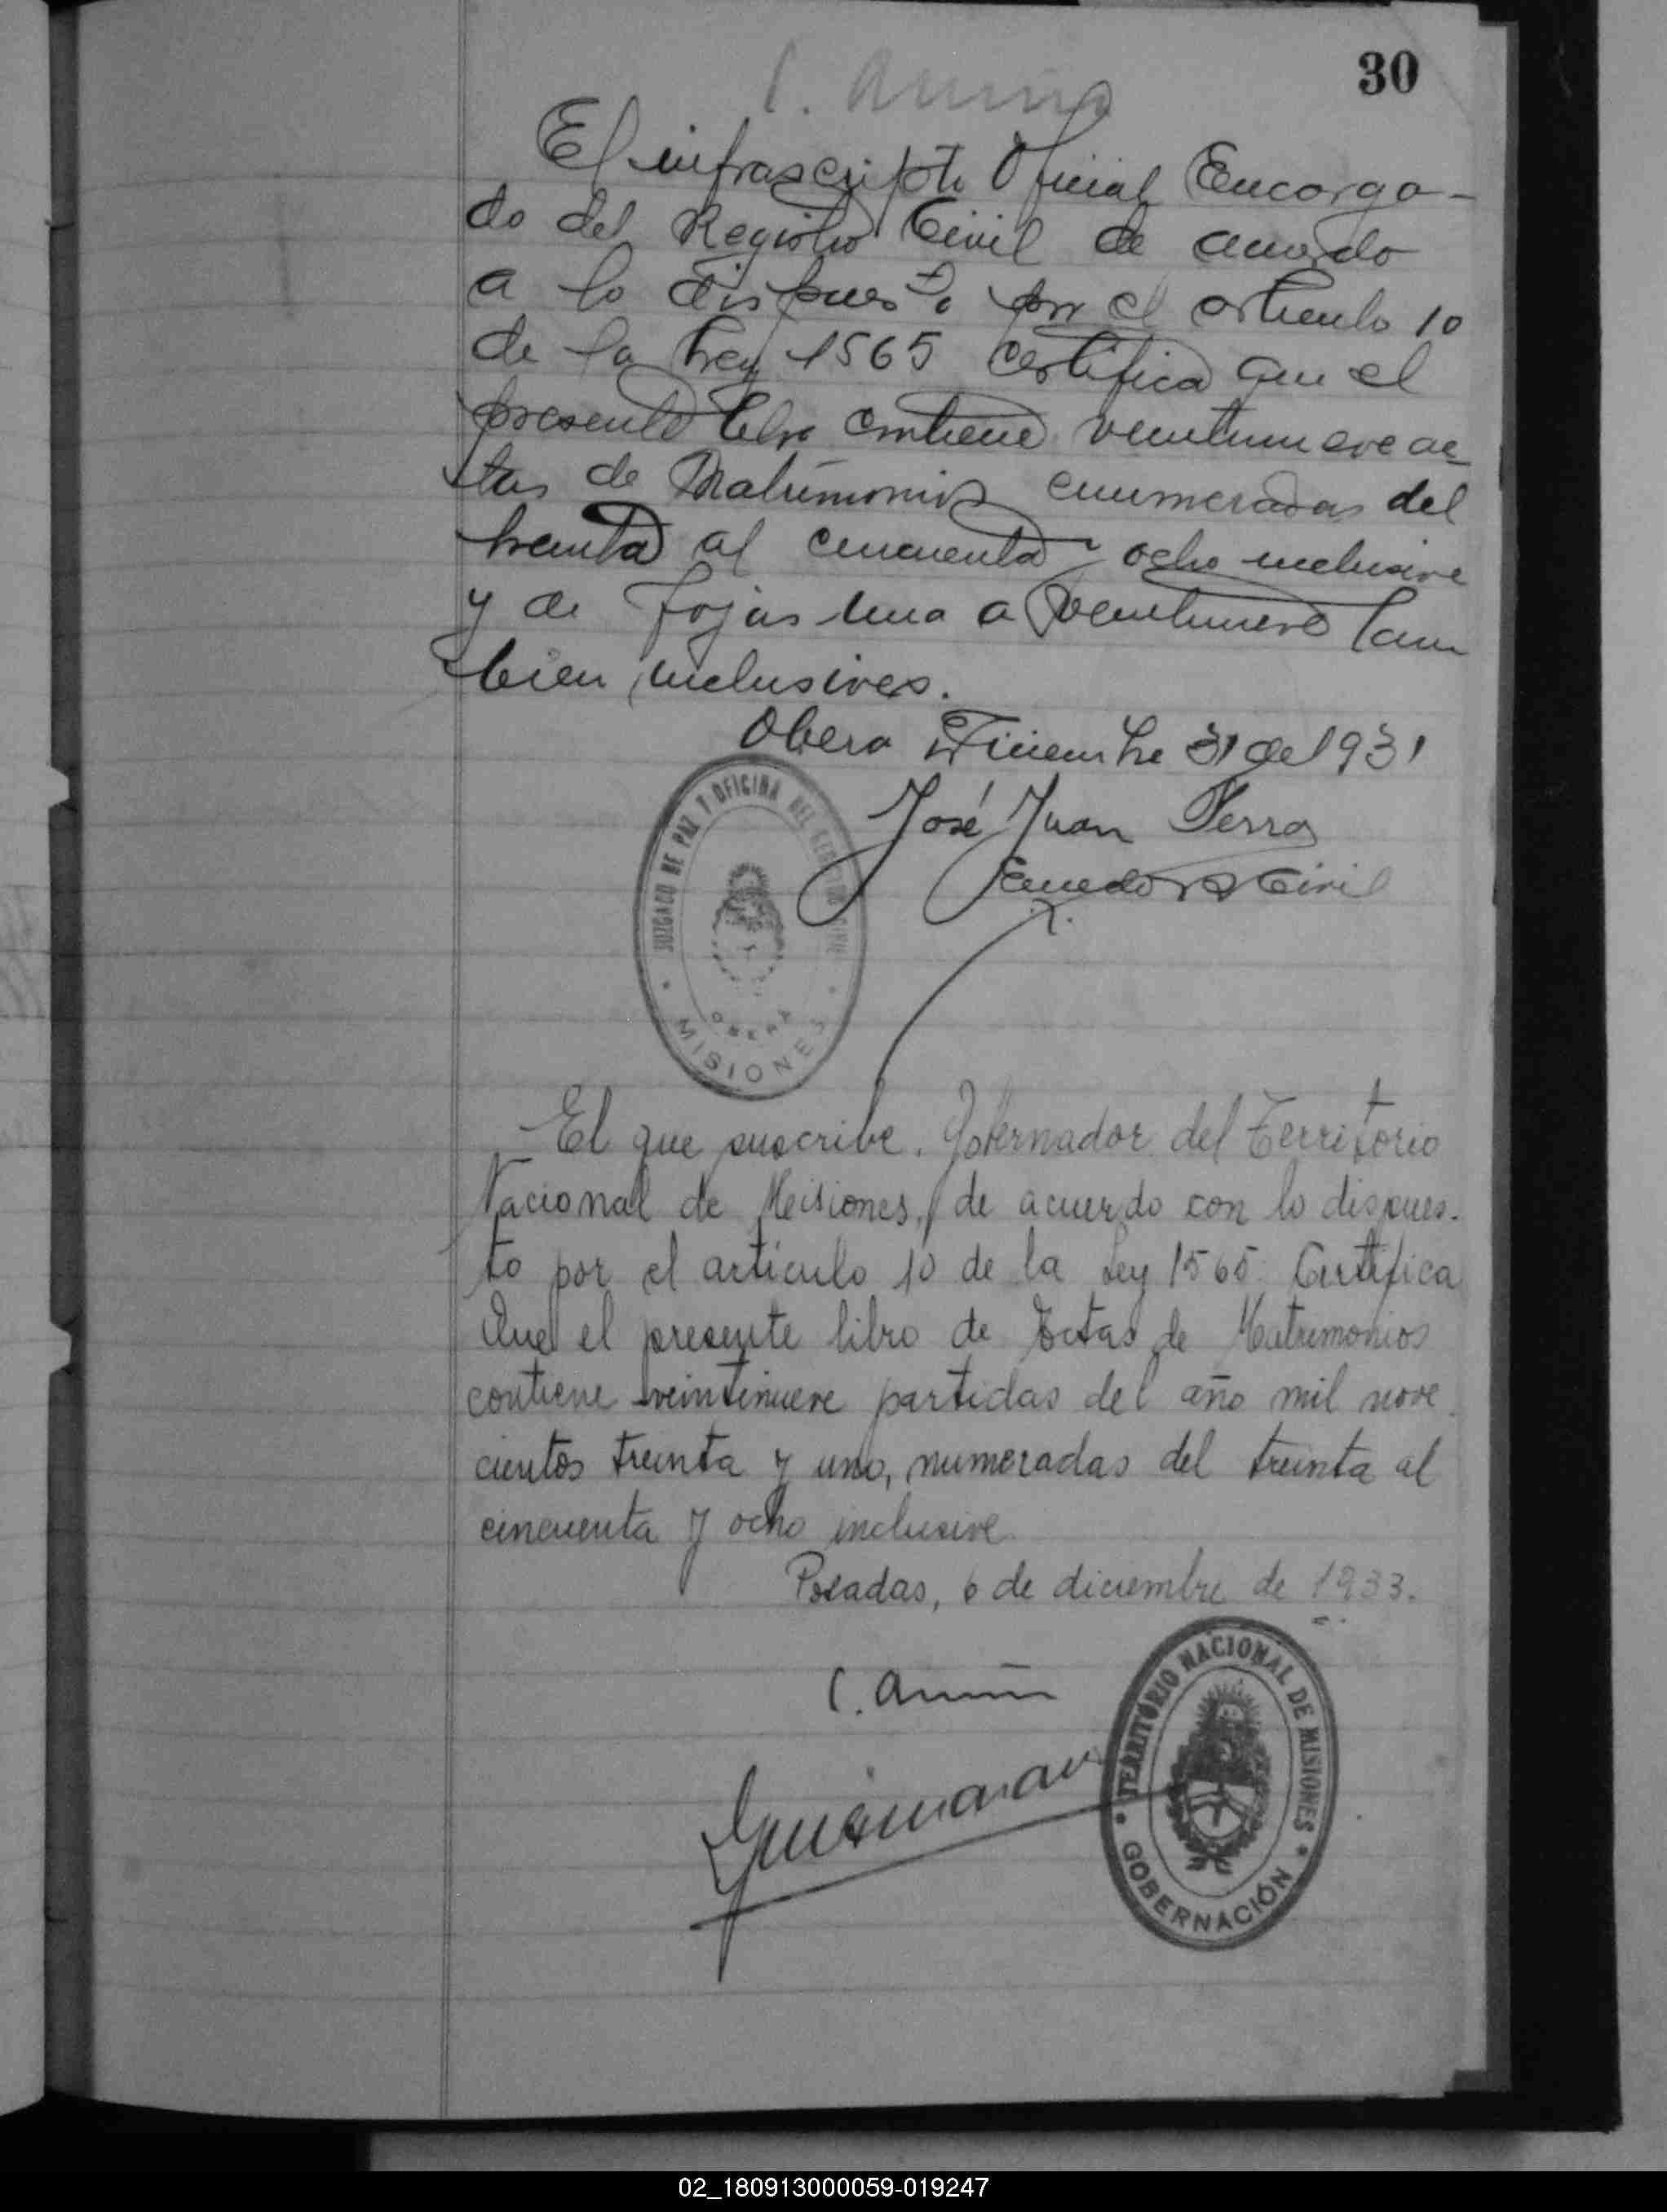 30
El infrascripto Oficial Encarga-
do del Registro Civil de acuerdo
a lo dispuesto por el articulo 10
de la Ley 1565 Certifica que el
presente libro contiene veintinueve ac-
tas de Matrimonios enumeradas del
treinta al cincuenta y ocho inclusive
y de fojas una a veintinueve tam
bien inclusives.
Obera Diciembre 31 de 1931
José Juan Ferra
Civil
JUZGADO DE PAZ Y OFICINA DEL REGISTRO CIVIL
OBERA
MISIONES
El que suscribe. Gobernador del Territorio
Nacional de Misiones, de acuerdo con lo dispues-
to por el artículo 10 de la Ley 1565. Certifica
Que el presente libro de Actas de Matrimonios
contiene veintinueve partidas del año mil nove
cientos treinta y uno, numeradas del treinta al
cincuenta y ocho inclusive
Posadas, 6 de diciembre de 1933.
TERRITORIO NACIONAL DE MISIONES
GOBERNACIÓN
02_180913000059-019247